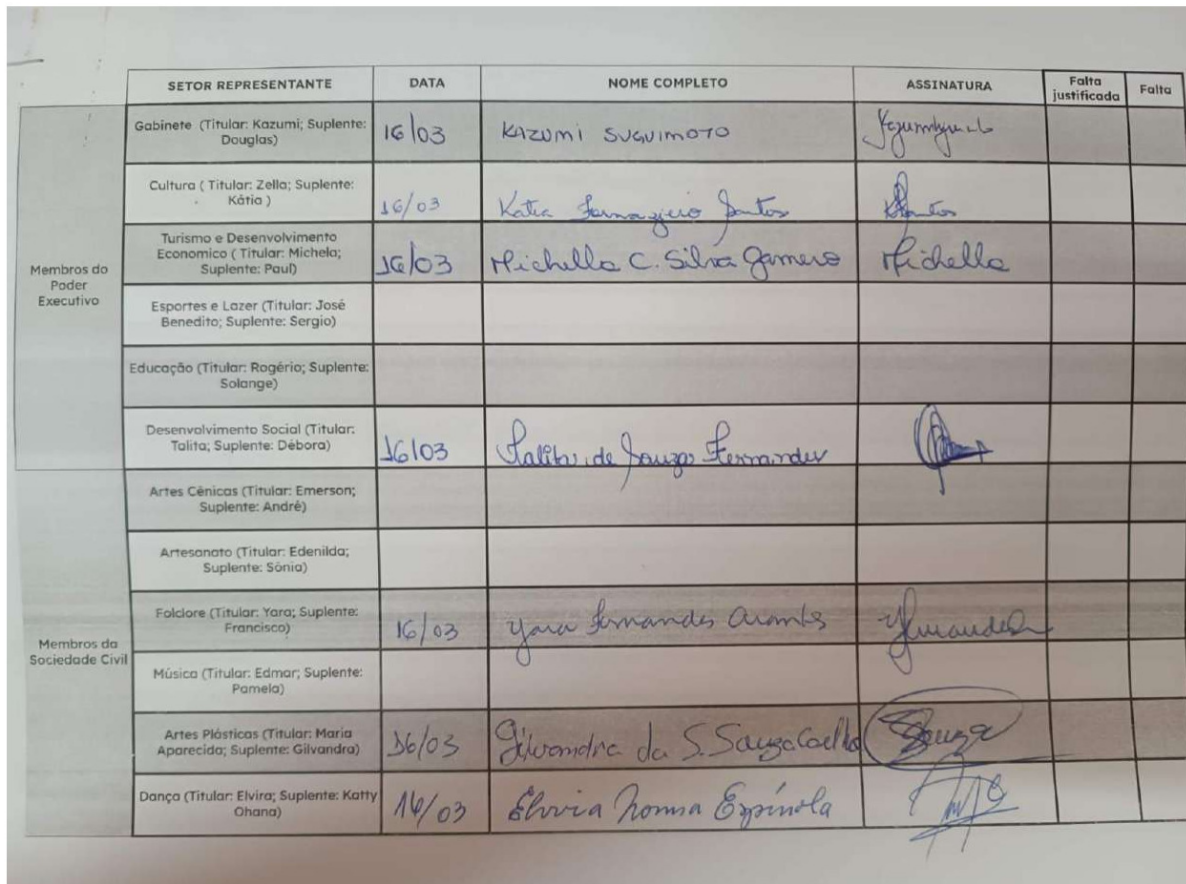 SETOR REPRESENTANTE DATA NOME COMPLETO ASSINATURA Falta justificada Falta
Membros do Poder Executivo
Gabinete (Titular: Kazumi; Suplente: Douglas) 16/03 KAZUMI SUGUIMOTO
Cultura ( Titular: Zella; Suplente: Kátia ) 16/03 Katia Santos
Turismo e Desenvolvimento Economico ( Titular: Michela; Suplente: Paul) 16/03 Michella C. Silva Gamero Michella
Esportes e Lazer (Titular: José Benedito; Suplente: Sergio)
Educação (Titular: Rogério; Suplente: Solange)
Desenvolvimento Social (Titular: Talita; Suplente: Débora) 16/03 Talita de Souza Fernandes
Membros da Sociedade Civil
Artes Cênicas (Titular: Emerson; Suplente: André)
Artesanato (Titular: Edenilda; Suplente: Sônia)
Folclore (Titular: Yara; Suplente: Francisco) 16/03 Yara Fernandes Arantes
Música (Titular: Edmar; Suplente: Pamela)
Artes Plásticas (Titular: Maria Aparecida; Suplente: Gilvandra) 16/03 Gilvandra da S. Souza Coelho Souza
Dança (Titular: Elvira; Suplente: Katty Ohana) 16/03 Espínola